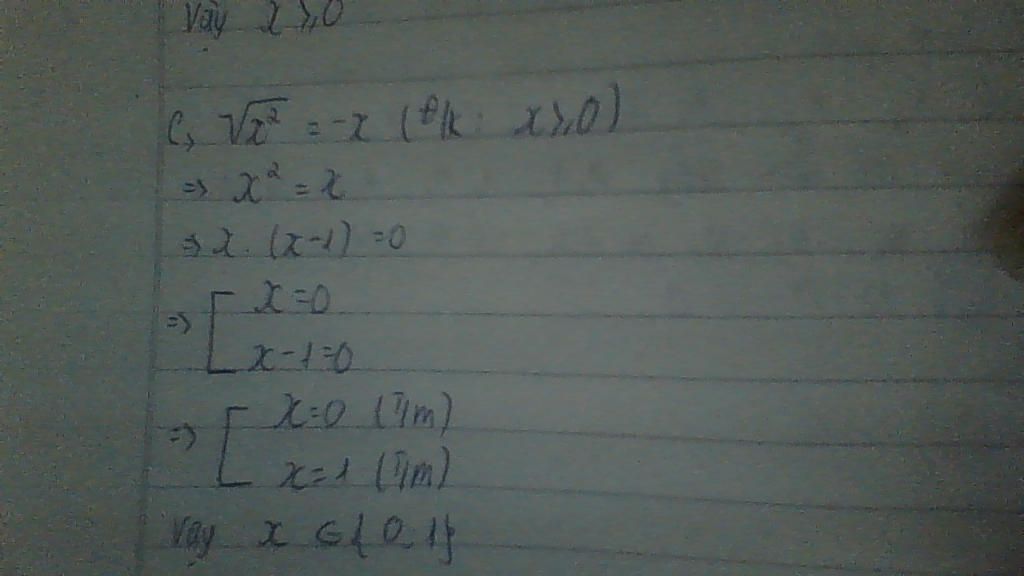 Vậy x ⩾ 0
C, √x² = -x (đ/k: x ⩾ 0)
=> x² = x
=> x . (x-1) = 0
=> [ x=0
x-1=0
=> [ x=0 (T/m)
x=1 (T/m)
Vậy x ∈ { 0, 1}